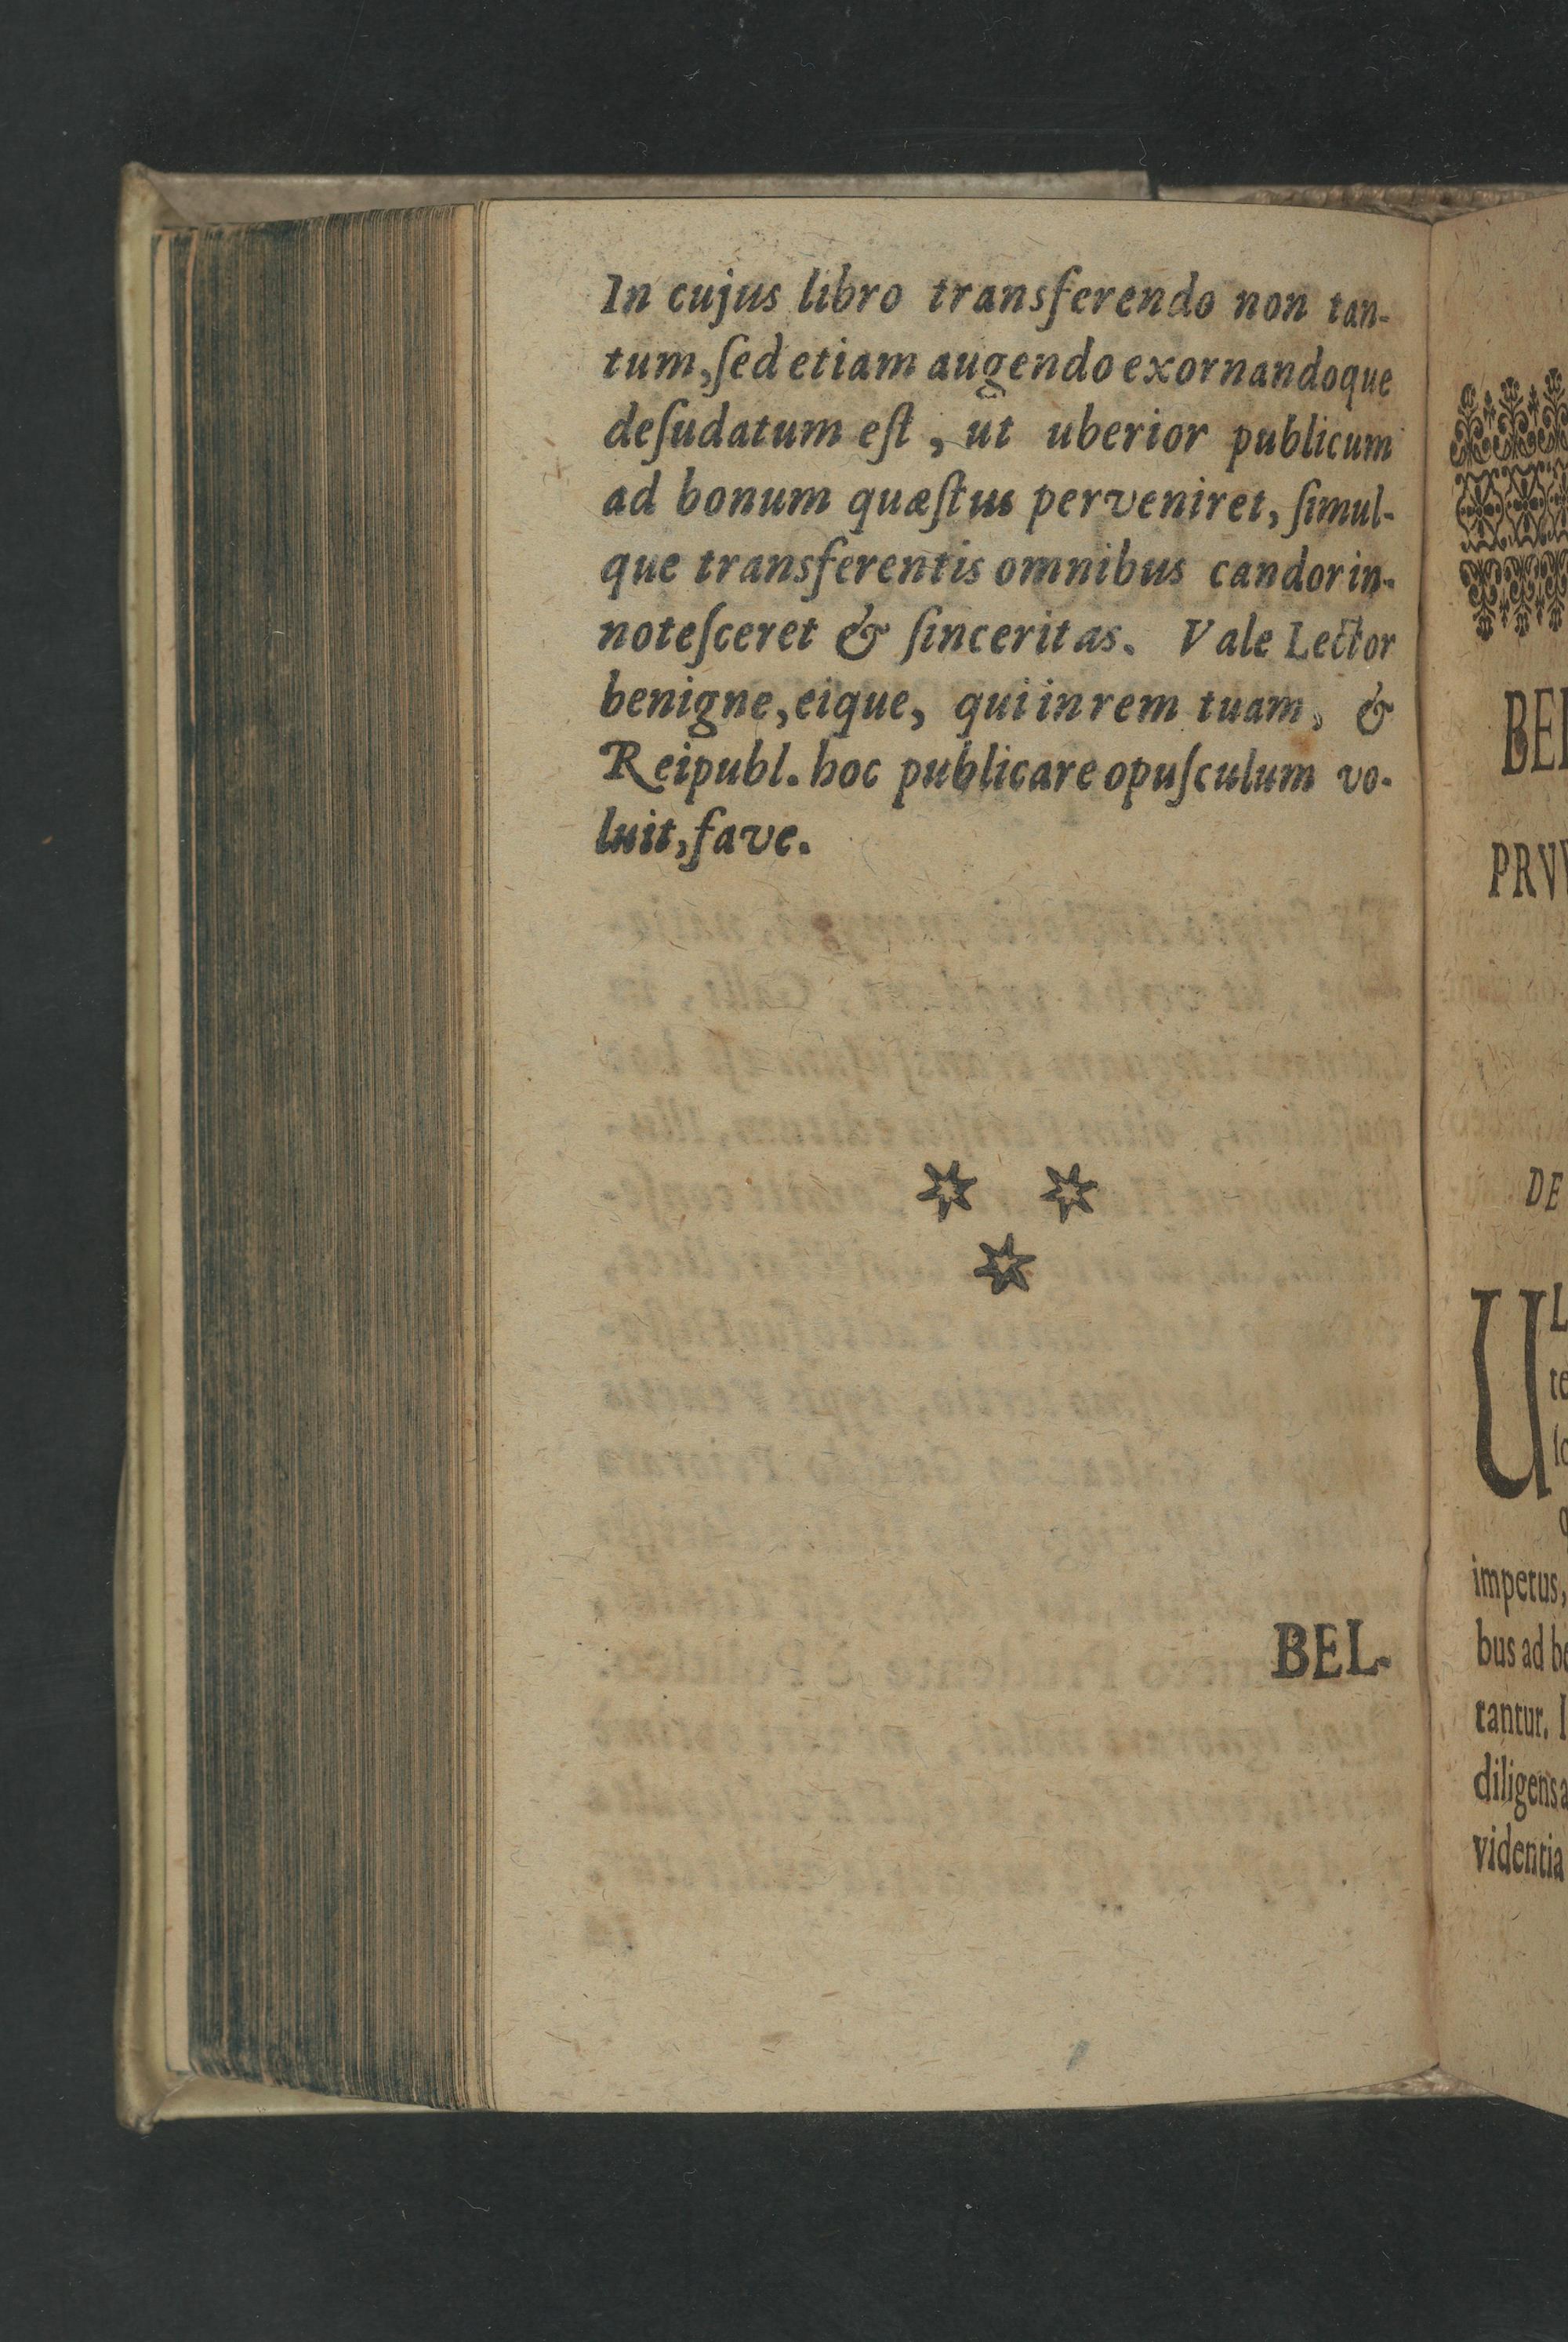 In cujus libro transferendo non tan-
tum, ſed etiam augendo exornandoque
deſudatum eſt, ut uberior publicum
ad bonum quæſtus perveniret, ſimul-
que transferentis omnibus candor in-
noteſceret & ſinceritas. Vale Lector
benigne, eique, qui in rem tuam, &
Reipubl. hoc publicare opuſculum vo-
luit, fave.
* *
*
BEL-
BEL
PRVV
DE
UL
te
impetus,
bus ad be
tantur. I
diligens a
videntia